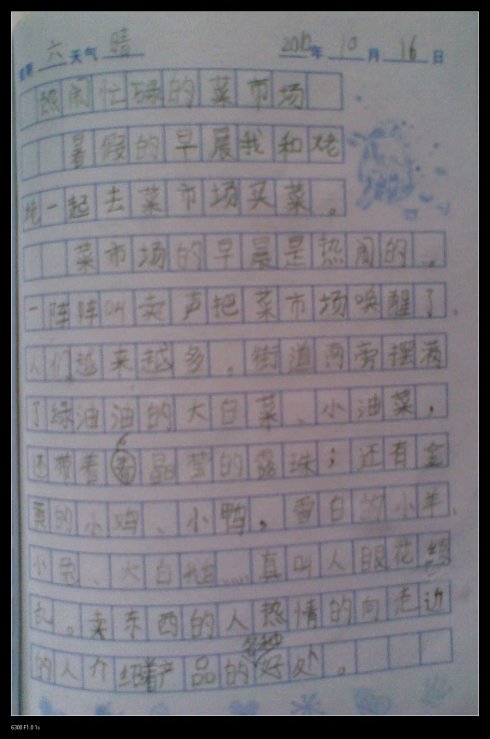 六 天气 晴 2010年 10月 16日
热闹忙碌的菜市场
暑假的早晨我和姥
姥一起去菜市场买菜。
菜市场的早晨是热闹的。
一阵阵叫卖声把菜市场唤醒了。
人们越来越多。街道两旁摆满
了绿油油的大白菜、小油菜，
还带着晶莹的露珠；还有金
黄的小鸡、小鸭，雪白的小羊、
小兔、大白……真叫人眼花缭
乱。卖东西的人热情的向走近
的人介绍着产品的各种好处。
6300.F1.0 1s